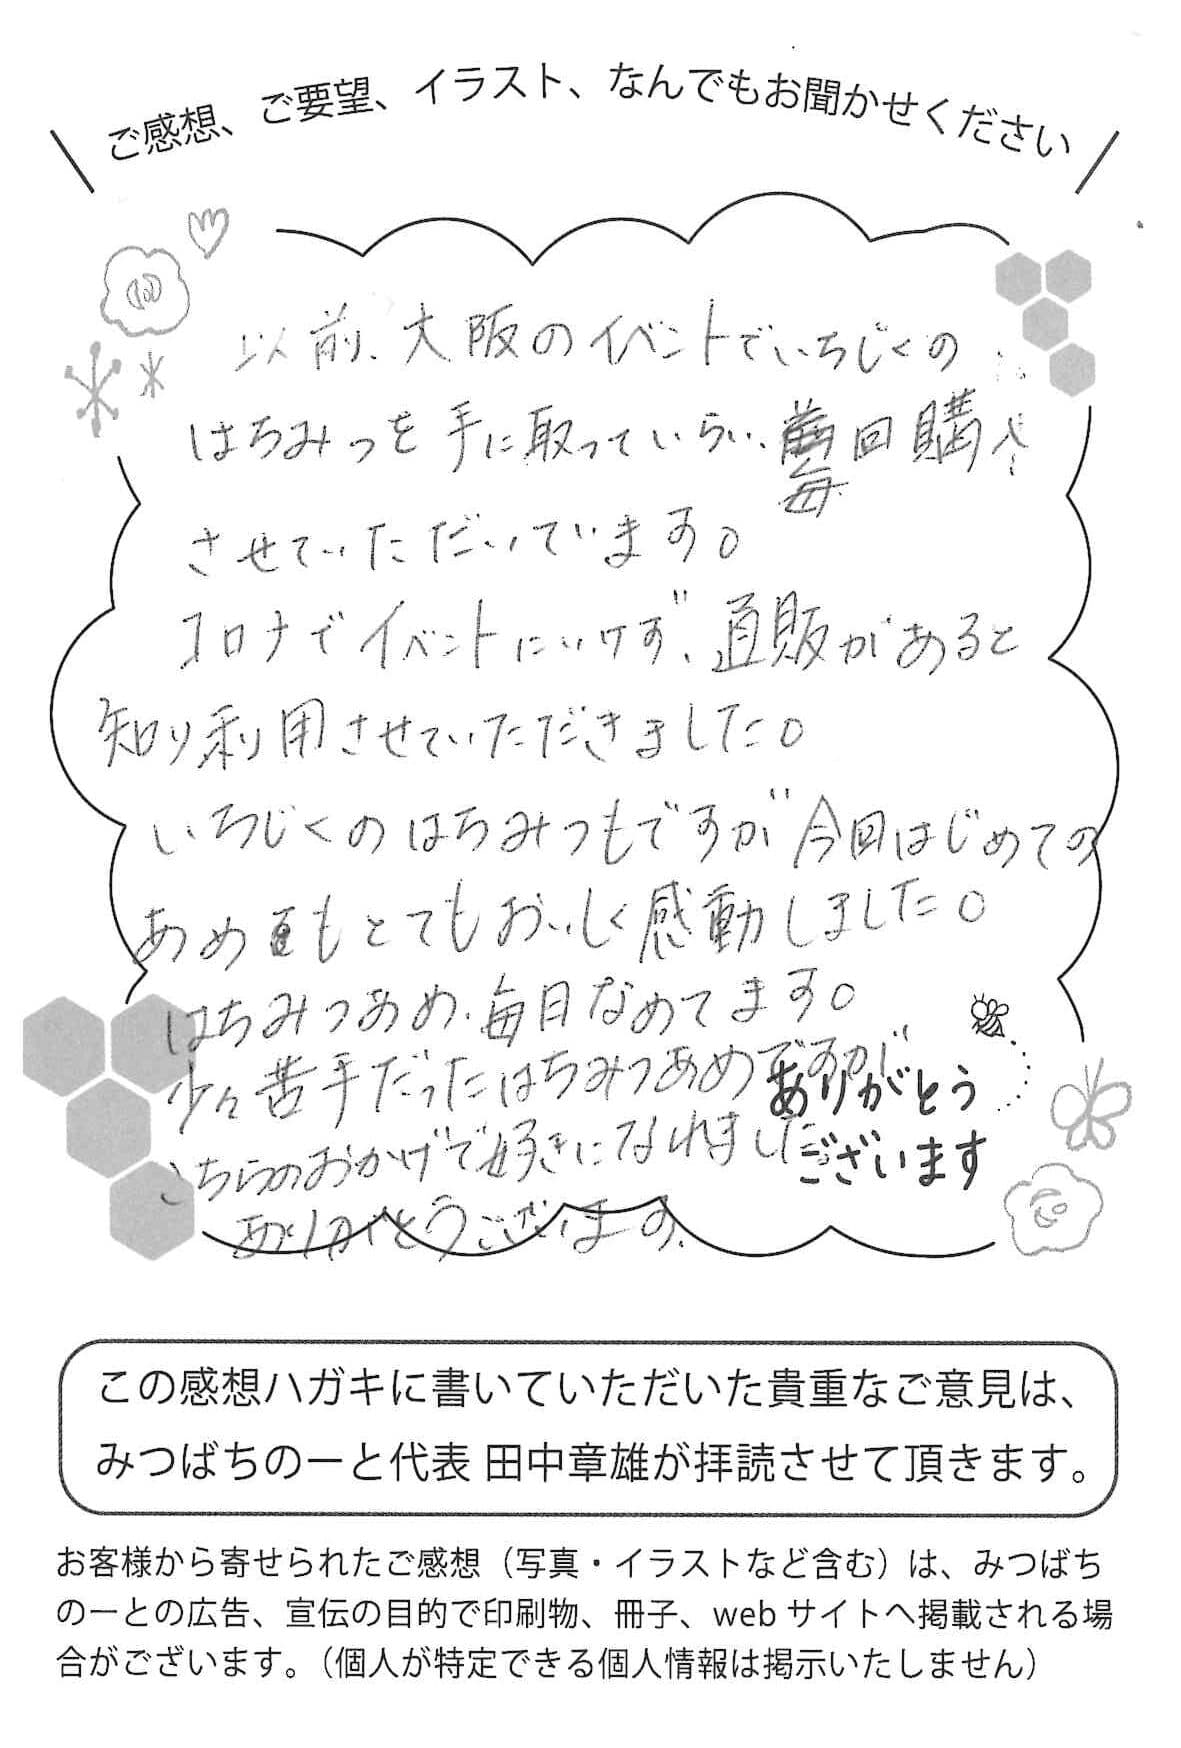 ご感想、ご要望、イラスト、なんでもお聞かせください
以前、大阪のイベントでいちじくの
はちみつを手に取っていらい、毎回購入
させていただいています。
コロナでイベントにいけず、直販があると
知り利用させていただきました。
いちじくのはちみつもですが今回はじめての
あめもとてもおいしく感動しました。
はちみつあめ、毎日なめてます。
少々苦手だったはちみつあめですが
こちらのおかげで好きになれました。
ありがとうございます。
ありがとう
ございます
この感想ハガキに書いていただいた貴重なご意見は、
みつばちのーと代表 田中章雄が拝読させて頂きます。
お客様から寄せられたご感想（写真・イラストなど含む）は、みつばち
のーとの広告、宣伝の目的で印刷物、冊子、web サイトへ掲載される場
合がございます。（個人が特定できる個人情報は掲示いたしません）